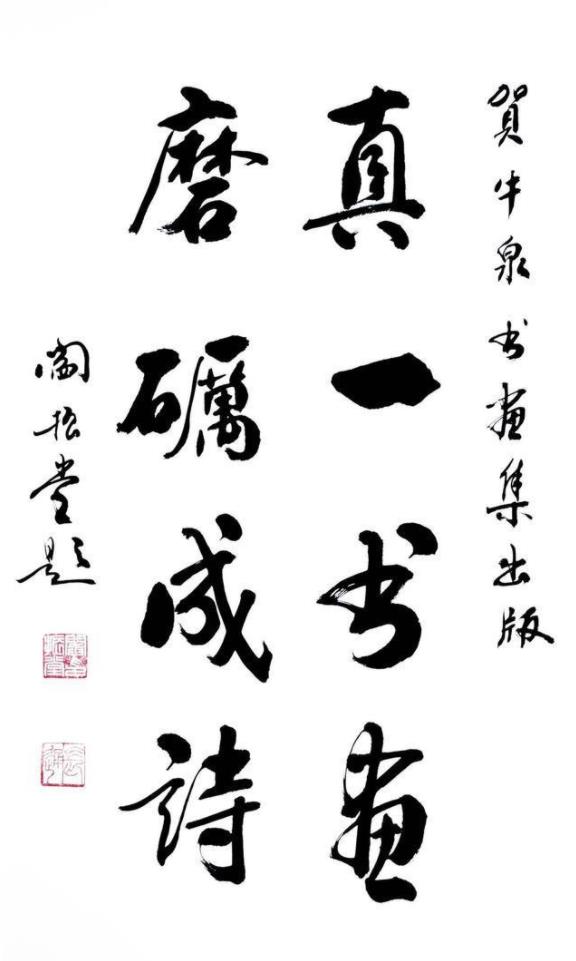 賀牛泉书画集出版
真一书画
磨礪成詩
阎振堂题